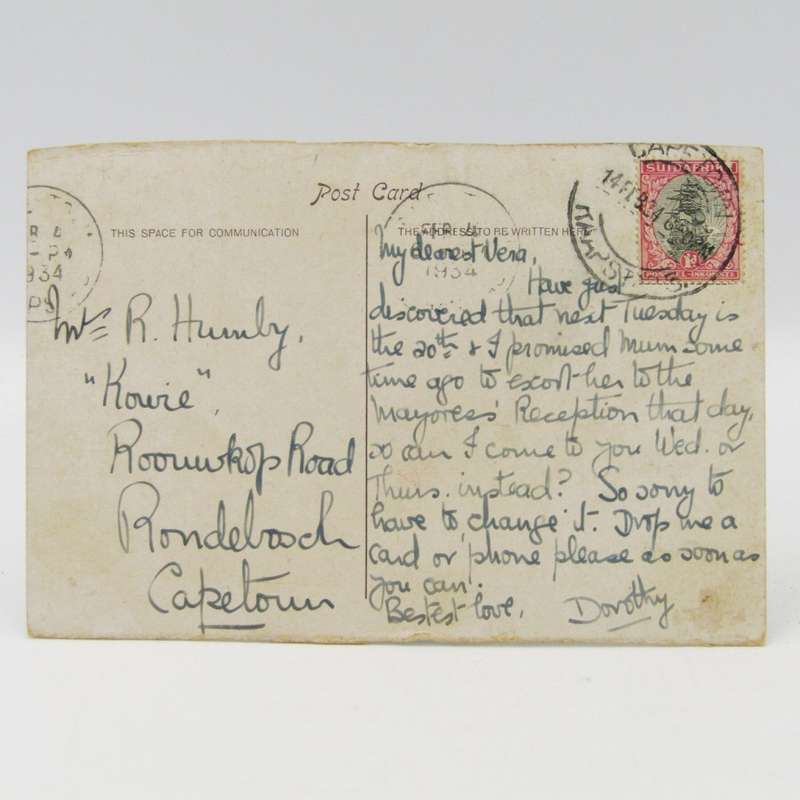 Post Card
THIS SPACE FOR COMMUNICATION
THE ADDRESS TO BE WRITTEN HERE
CAPETOWN
14 FE
SUIDAFRIKA
1D
1934
FEB 4
1934
Mrs R. Humby,
"Kowie",
Rouwkop Road
Rondebosch
Capetown
My dearest Vera,
Have just
discovered that next Tuesday is
the 20th & I promised Mum some
time ago to escort her to the
Mayoress' Reception that day,
so can I come to you Wed. or
Thurs. instead? So sorry to
have to change it. Drop me a
card or 'phone please as soon as
you can.
Bestest love,
Dorothy